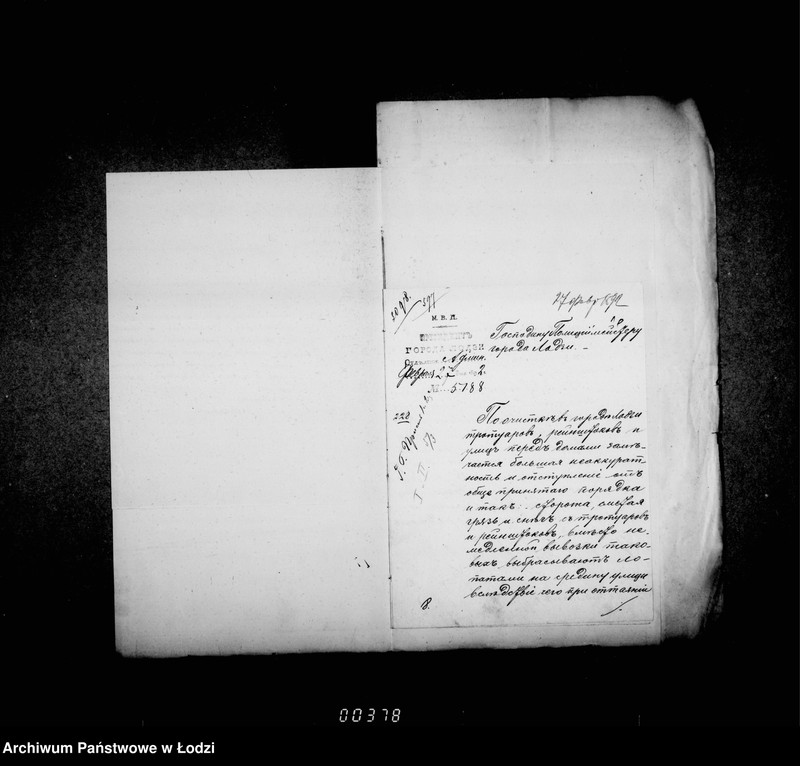 27 февр 1892
5098.
597
М. В. Д.
ПРЕЗИДЕНТЪ
ГОРОДА ЛОДЗИ
Админ.
Февраля 27 2.
№ 5188
228
Господину Полиціймейстеру
города Лодзи. –
По очисткѣ въ городѣ Лодзи
тротуаровъ, рейнштоковъ и
улицъ передъ домами замѣ-
чается большая неаккурат-
ность и отступленіе отъ
обще принятаго порядка
и такъ: сторожа, сметая
грязь и снѣгъ съ тротуаровъ
и рейнштоковъ, вмѣсто не-
медленной вывозки тако-
выхъ, выбрасываютъ ло-
патами на средину улицы
вслѣдствіе чего при оттаяніи
В.
00378
Archiwum Państwowe w Łodzi